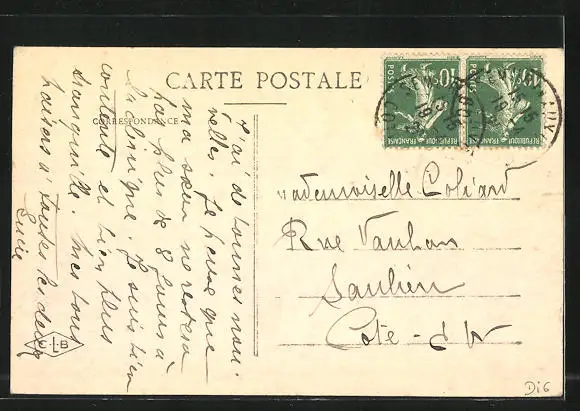 CARTE POSTALE
CORRESPONDANCE
J'ai de bonnes nou-
velles. Je pense que
ma sœur ne restera
pas plus de 8 jours à
la clinique. Je suis bien
contente et bien plus
tranquille. Mes bons
baisers à toutes les deux
Lucie
Mademoiselle Coliard
Rue Vauban
Saulieu
Côte-d'Or
POSTES 10c
REPUBLIQUE FRANÇAISE
POSTES 10c
REPUBLIQUE FRANÇAISE
C L B
Di6